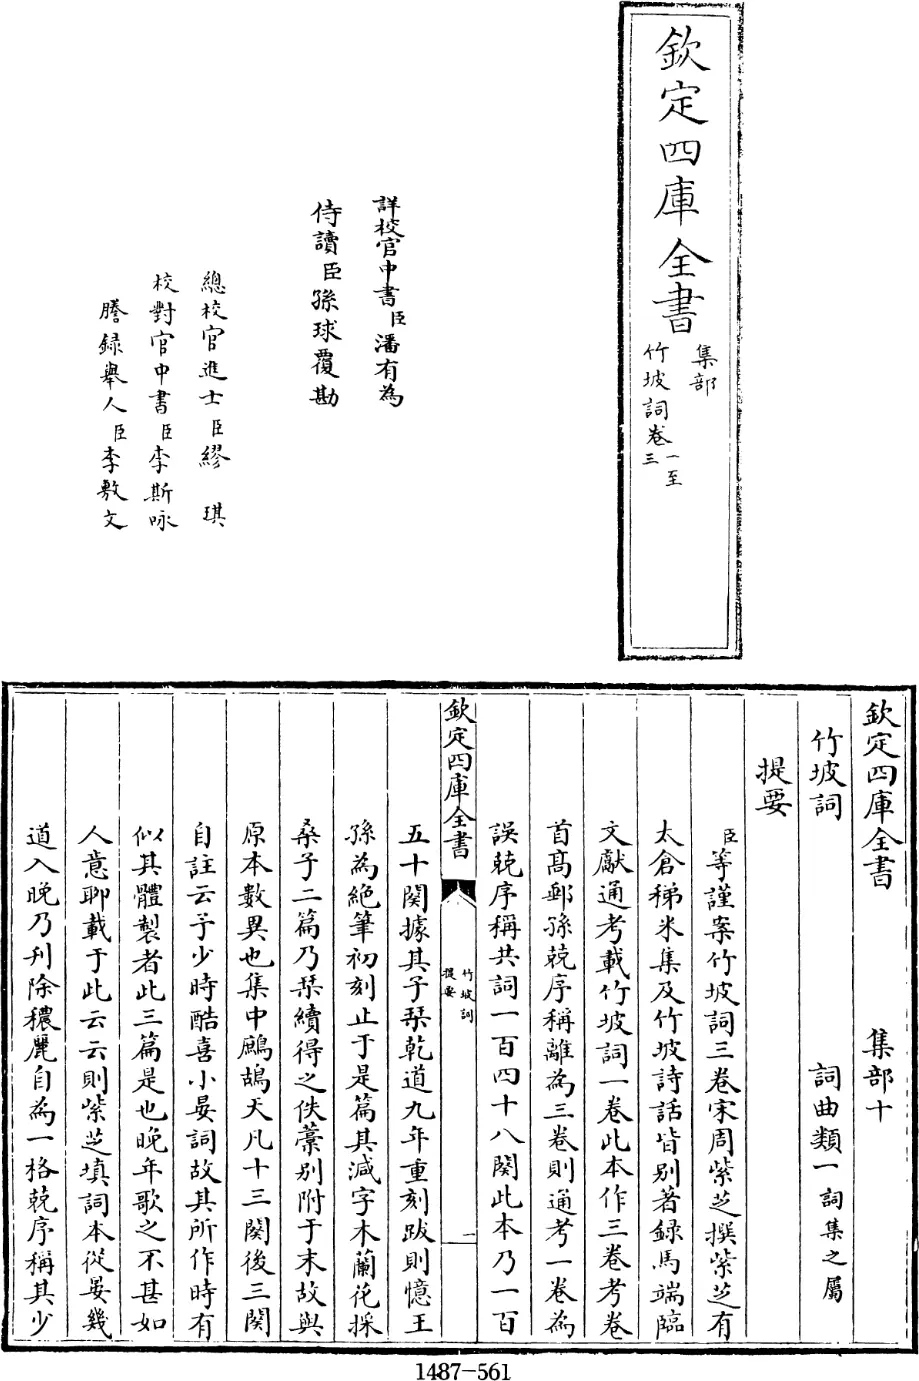 欽定四庫全書
集部
竹坡詞卷一至三
詳校官中書臣潘有為
侍讀臣孫球覆勘
總校官進士臣繆琪
校對官中書臣李斯咏
謄錄舉人臣李敷文
欽定四庫全書 集部十
竹坡詞 詞曲類一詞集之屬
提要
臣等謹案竹坡詞三卷宋周紫芝撰紫芝有
太倉稊米集及竹坡詩話皆別著錄馬端臨
文獻通考載竹坡詞一卷此本作三卷考卷
首高郵孫兢序稱離為三卷則通考一卷為
誤兢序稱共詞一百四十八闋此本乃一百
欽定四庫全書
竹坡詞
提要
一
五十闋據其子栞乾道九年重刻跋則憶王
孫為絶筆初刻止于是篇其減字木蘭花採
桑子二篇乃栞續得之佚藁別附于末故與
原本數異也集中鷓鴣天凡十三闋後三闋
自註云予少時酷喜小晏詞故其所作時有
似其體製者此三篇是也晚年歌之不甚如
人意聊載于此云云則紫芝填詞本從晏幾
道入晚乃刋除穠麗自為一格兢序稱其少
1487-561